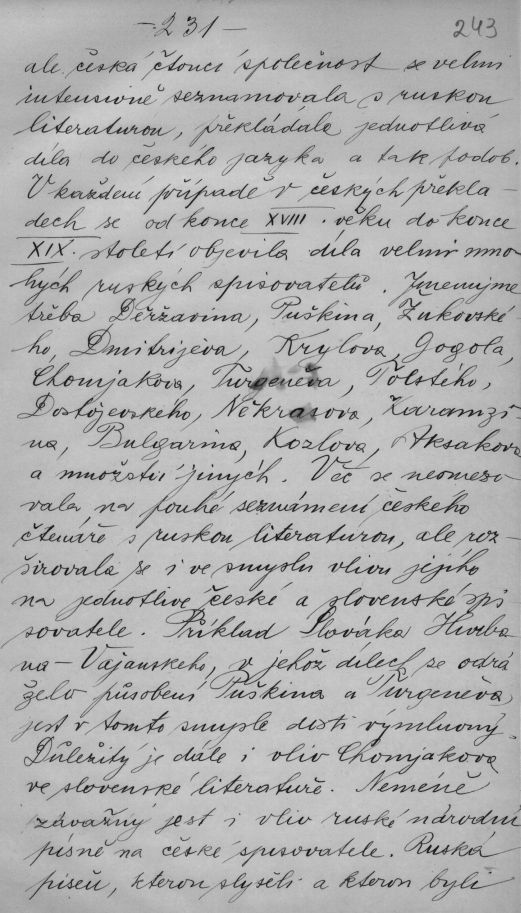 - 231 -
243
ale česká čtoucí společnost se velmi
intensivně seznamovala s ruskou
literaturou, překládala jednotlivá
díla do českého jazyka a tak podob.
V každém případě v českých překla-
dech se od konce XVIII. věku do konce
XIX. století objevila díla velmi mno-
hých ruských spisovatelů. Jmenujme
třeba Děržavina, Puškina, Žukovské-
ho, Dmitrijeva, Krylova, Gogola,
Chomjakova, Turgeněva, Tolstého,
Dostojevského, Někrasova, Karamzi-
na, Bulgarina, Kozlova, Aksakova
a množství jiných. Věc se neomezo-
vala na pouhé seznámení českého
čtenáře s ruskou literaturou, ale roz-
širovala se i ve smyslu vlivu jejího
na jednotlivé české a slovenské spi-
sovatele. Příklad Slováka Hurba-
na-Vajanského, v jehož dílech se odrá
želo působení Puškina a Turgeněva,
jest v tomto smyslu dosti výmluvný.
Důležitý je dále i vliv Chomjakova
ve slovenské literatuře. Neméně
závažný jest i vliv ruské národní
písně na české spisovatele. Ruská
píseň, kterou slyšeli a kterou byli